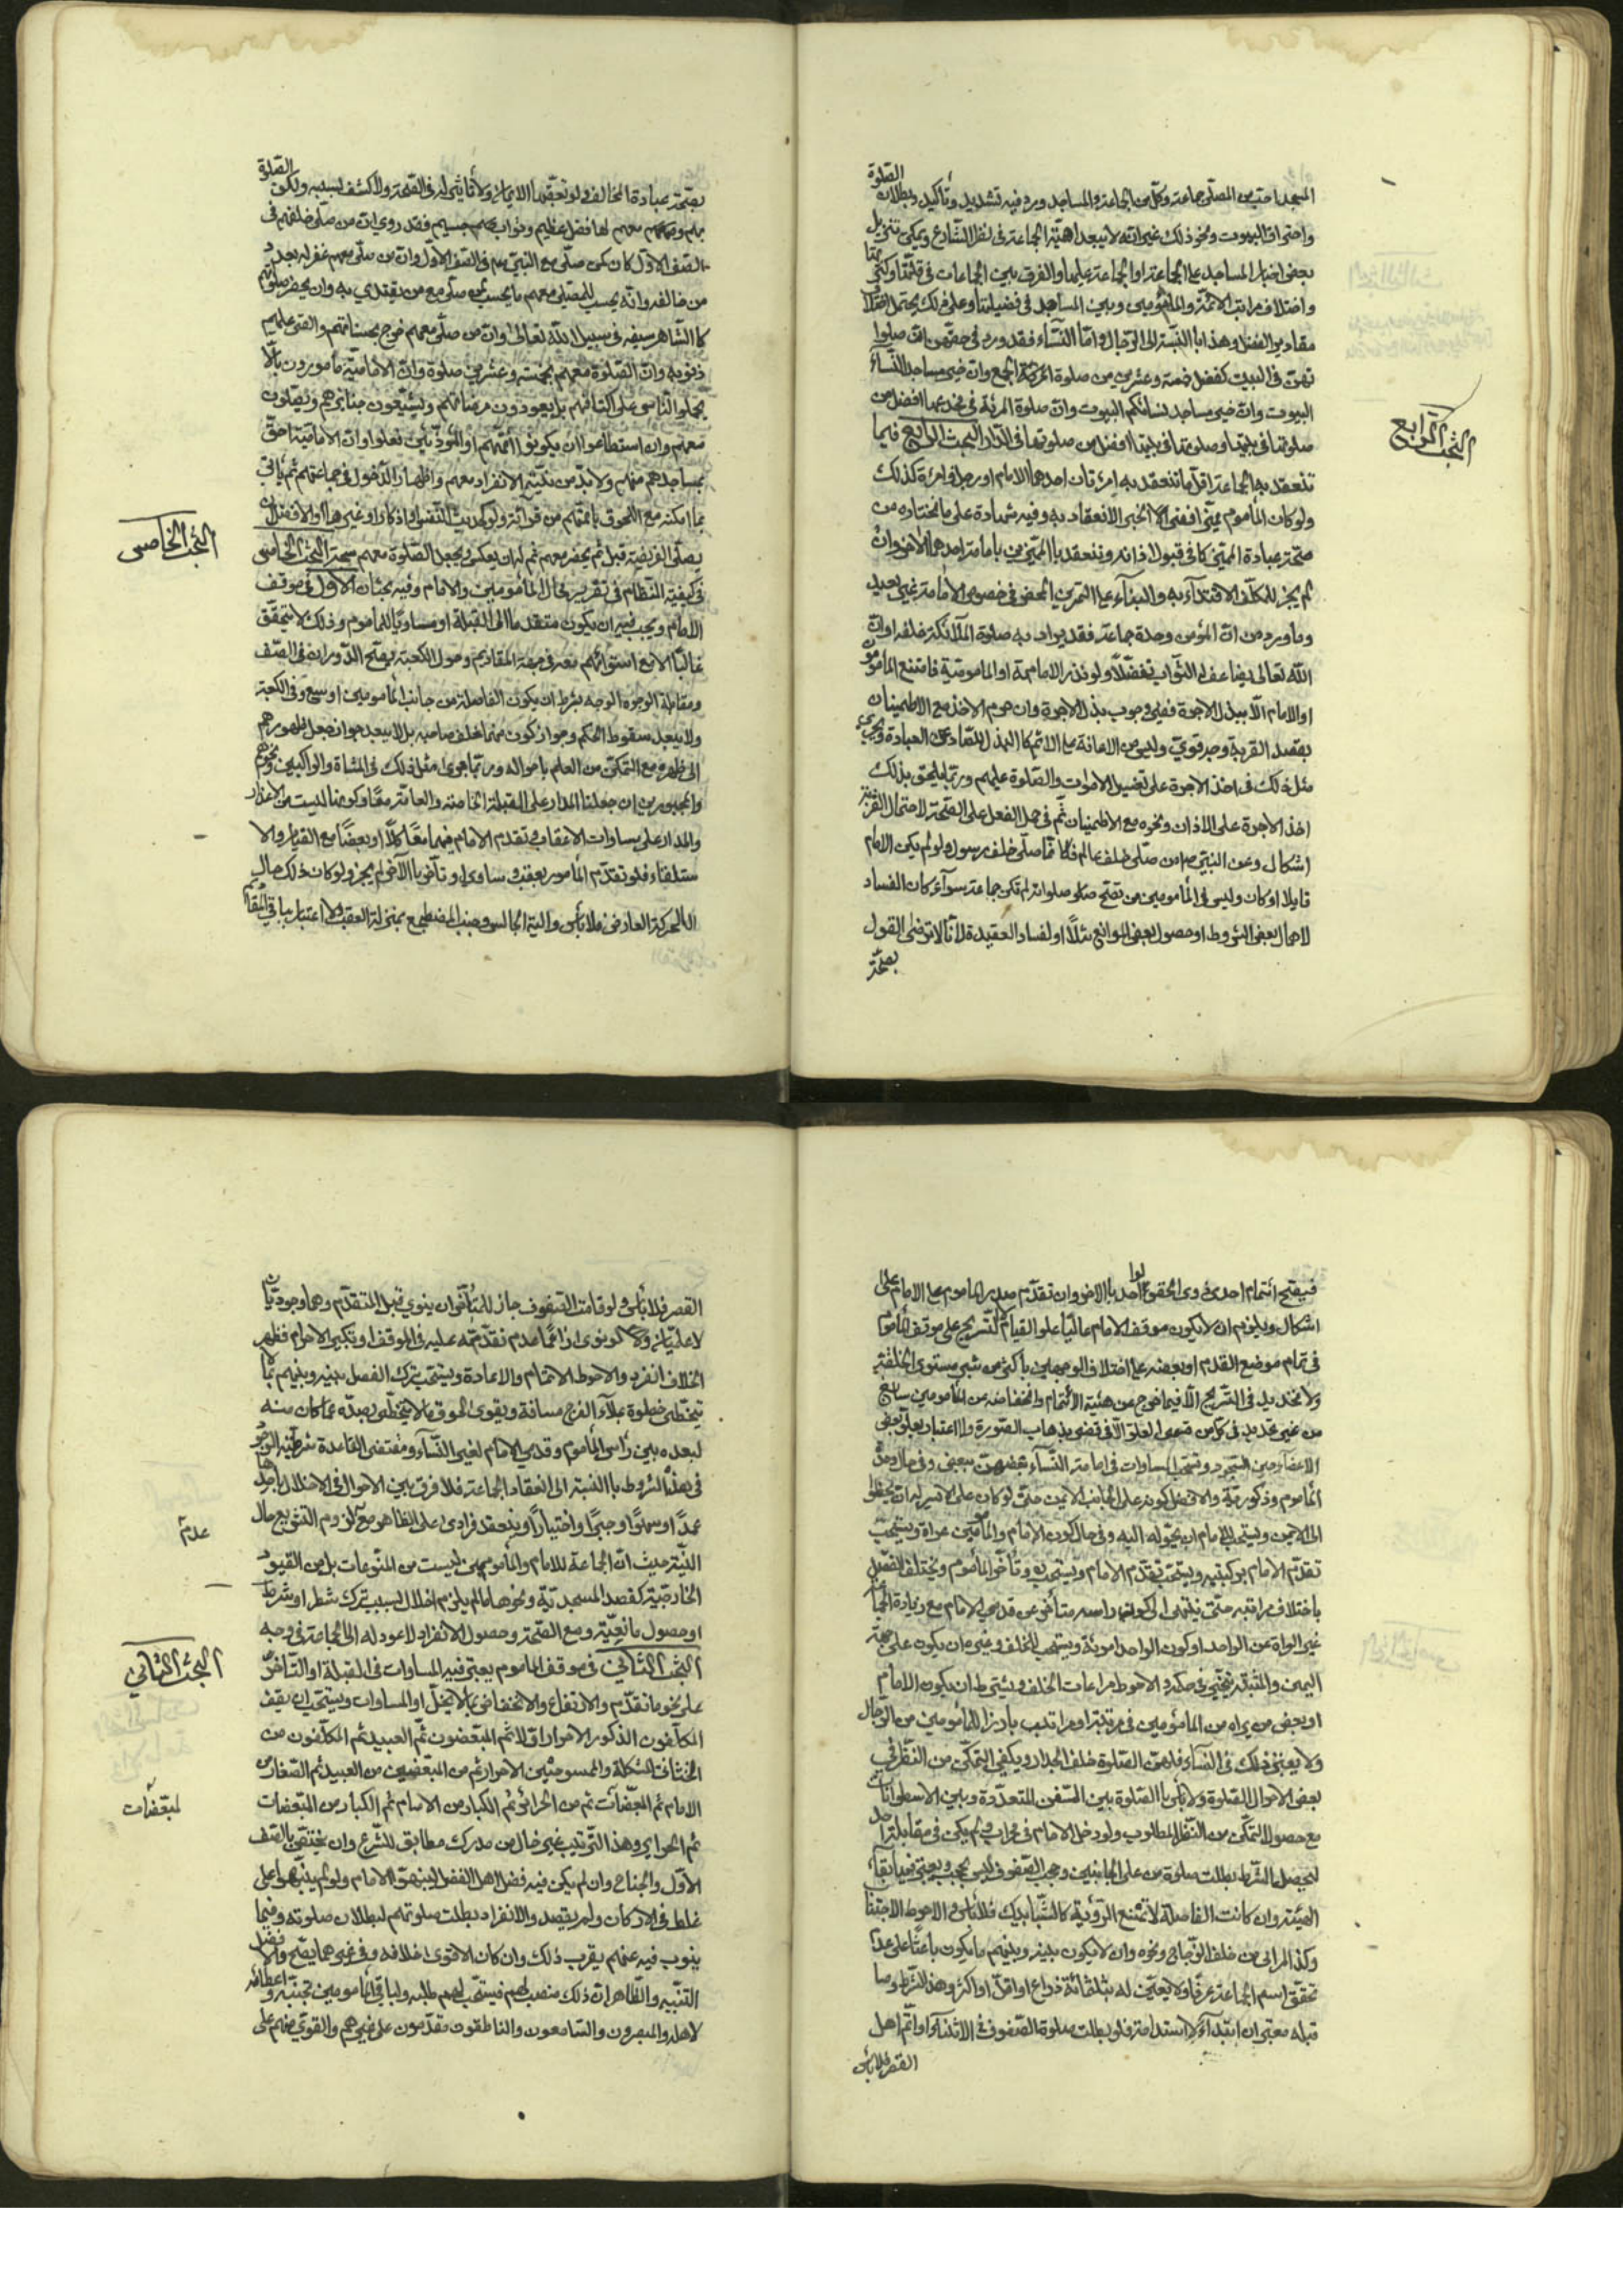 المسجد احب من المصلّى جماعة وكل من الجماعة والمساجد ورد فيه تشديد وتأكيد وبطلان الصّلوة
واحتراق البيوت ونحو ذلك غير انّه لا يبعد اهميّة الجماعة فى نظر الشّارع ويمكن تنزيل
بعض اخبار المساجد على الجماعة او الجماعة عليها والفرق بين الجماعات فى قلّتها وكثرتها
واختلاف مراتب الائمّة والمأمومين وبين المساجد فى فضيلتها وعلى ذلك يحتمل اختلاف
مقادير الفضل وهذا بالنّسبة الى الرّجال وامّا النّساء فقد ورد فى حقّهن انّ صلو
تهنّ فى البيت كفضل خمسة وعشرين من صلوة الجمع وان خير مساجد النّساء
البيوت وانّ خير مساجد نسائكم البيوت وانّ صلوة المرئة فى مخدعها افضل من
صلوتها فى بيتها وصلوتها فى بيتها افضل من صلوتها فى الدّار البحث الرّابع فيما
تنعقد به الجماعة اقلّ ما تنعقد به امرئتان احدهما الامام او رجل وامرئة كذلك
ولو كان المأموم مميّزا ففى الانعقاد به وفيه شهادة على ما نختاره من
صحّة عبادة المميّز كما فى قبول اذانه وتنعقد بالمميّزين بامامة احدهما الاخر وان
لم يجز للمكلّف الاقتداء به والبناء على التمرين المحض فى خصوص الامامة غير بعيد
وما ورد من انّ المؤمن وحده جماعة فقد يراد به صلوة الملائكة خلفه او انّ
اللّه تعالى يضاعف له الثّواب تفضّلًا ولو نذر الامامة او المامومية فامتنع المامومون
او الامام الّا ببذل الاجرة ففى وجوب بذل الاجرة وان حرم الاخذ مع الاطمينان
بقصد القربة وجه قوىّ وليس من الاعانة على الاثم كالبذل للصّادّ عن العبادة ويجرى
مثل ذلك فى اخذ الاجرة على تغسيل الاموات والصّلوة عليهم وربّما يلحق بذلك
اخذ الاجرة على الاذان ونحوه مع الاطمينان ثم فى حمل الفعل على الصّحة لاحتمال القربة
اشكال وعن النبىّ ص من صلّى خلف عالم فكانّما صلّى خلف رسول ولو لم يكن الامام
قابلا او كان وليس فى المأمومين من تصحّ صلوته لم تكن جماعة سوآء كان الفساد
لاهمال بعض الشروط او حصول بعض الموانع مثلًا او لفساد العقيدة لانّا لا نرتضى القول
بصحّة
البحث الرّابع
بصحّة عبادة المخالف ولو تعقّبها الايمان ولا تأثير له فى الصّحة ولا كشف بسببه ولكن الصّلوة
بهم ومعهم لها فضل عظيم وثواب جسيم فقد روى ان من صلّى خلفهم فى
الصّف الاوّل كان كمن صلّى مع النبىّ ص فى الصّف الاوّل وانّ من صلّى معهم غفر له بعدد
من خالفه وانّه يحسب للمصلّى معهم ما يحسب لمن صلّى مع من يقتدى به وان يحضر صلوتهم
كالشّاهر سيفه فى سبيل اللّه تعالى وانّ من صلّى معهم خرج بحسناتهم والقى عليهم
ذنوبه وانّ الصّلوة معهم بخمسة وعشرين صلوة وانّ الاماميّة مأمورون بالّا
يحملوا النّاس على اكتافهم بل يعودون مرضاهم ويشيّعون جنايزهم ويصلّون
معهم وان استطاعوا ان يكونوا ائمّتهم او المؤذّنين فعلوا وانّ الاماميّة احق
بمساجدهم منهم ولا بدّ من نيّة الانفراد معهم واظهار الدّخول فى جماعتهم ثم يأتى
بما امكنه مع الخوف باتمامهم من قرائة ولو كحديث النّفس او اذكار او غيرهما والافضل ان
يصلّى الفريضة قبل ثم يحضر معهم ثم له ان يعكس ويجعل الصّلوة معهم سبحة البحث الخامس
فى كيفيّة النّظام فى تقرير محال المأمومين والامام وفيه بحثان الاوّل فى موقف
الامام ويجب فيه ان يكون متقدما الى القبلة او مساويًا للماموم وذلك لا يتحقّق
غالبًا الا مع استوائهم معه فى جهة المقاديم وحول الكعبة يصحّ الدّوران فى الصّف
ومقابلة الوجوه الوجه بشرط ان يكون الفاصلة من جانب المأمومين اوسع وفى الكعبة
ولا يبعد سقوط الحكم وجواز كون منهما خلف صاحبه بل لا يبعد جواز جعل ظهورهم
الى ظهره مع التمكّن من العلم باحواله وربّما جرى مثل ذلك فى المشاة والراكبين ونحوهم
والمجبورين ان جعلنا المدار على القبلة الخاصة والعامّة معًا وكونها ليست من الاعذار
والمدار على مساوات الاعقاب وتقدم الامام فيهما معًا كلًّا او بعضًا مع القيام والا
ستلقاء فلو تقدّم المأموم بعقب وساوى او تأخّر بالاخر لم يجز ولو كان ذلك حال
الحركة العارض فلا بأس والية الجالس وجنب المضطجع بمنزلة العقب ولا اعتبار بباقى المقاديم
البحث الخامس
فيصحّ ائتمام احدى ذوى الحقو الواحد بالاخر وان تقدّم صدر الماموم على الامام على
اشكال ويلزم ان لا يكون موقف الامام عاليًا علو القيام لا التّسريح على موقف المأموم
فى تمام موضع القدم او بعضه على اختلاف الوجهين بأكثر من شبر مستوى الخلقة
ولا تحديد فى التّسريح الّا فيما خرج عن هيئة الائتمام وانخفاضه من المأمومين سايغ
من غير تحديد فى كلّ من قسمى العلو الّا فى تقضى بذهاب الصّورة ولا اعتبار بعلو بعض
الاعضاء حين السّجود وتستحب المساوات فى امامة النّساء بعضهنّ لبعض وفى حال وحدة
المأموم وذكوريّته والافضل كونه على الجانب الايمن حتّى لو كان على الايسر
الى اليمين ويستحب للامام ان يحوّله اليه وفى حال كون الامام والمأمومين عراة ويستحب
تقدّم الامام بركبتيه ويستحب تقدّم الامام ويستحب وتأخّر المأموم ويختلف الفضل
باختلاف مراتبه حتّى ينتهى الى كون راسه متأخّر عن قدمى الامام مع زيادة الجماعة
غير المراة عن الواحد او كون الواحد امرئة ويستحب الخلف وفى ان يكون على جهة
اليمين والاحوط مراعات الخلف ويشترط ان يكون الامام
او بعض من يراه من المأمومين فى مرتبة او مراتب بارزا للمأمومين من الرّجال
ولا يعتبر ذلك فى النّساء فلهنّ الصّلوة خلف الجدار ويكفى التمكّن من النّظر فى
بعض الاحوال للصّلوة ولا بأس بالصّلوة بين السّفن المتعدّدة وبين الاسطوانات
مع حصول التمكّن من النّظر المطلوب ولو دخل الامام فى محراب ولم يكن فى مقابلته احد
لتحصيل الشّرط بطلت صلوة من على الجانبين وحجب الصّفوف ليس بحجب ويعتبر فيه ابقاء
الهيئة وان كانت الفاصلة لا تمنع الرّؤية كالشّبابيك فلا بأس والاحوط الاجتناب
وكذا المرائى من خلف الزّجاج ونحوه وان لا يكون بينه وبينهم ما يكون باعثًا على عدم
تحقّق اسم الجماعة عرفًا ولا يتعيّن له بثلثمائة ذراع او اقلّ او اكثر وهذا الشّرط وما
قبله معتبر ان ابتدآءً لا استدامة فلو بطلت صلوة الصّفوف فى الاثناء او اتم اهل
القصر فلا بأس
القصر فلا بأس ولو قامت الصّفوف جاز للمتأخّر ان ينوى قبل المتقدّم وهما وجوديّان
لا علميّان ولو نوى زاعمًا عدم تقدّمه عليه فى الموقف او تكبير الاحرام فظهر
الخلاف انفرد والاحوط الاتمام والاعادة ويستحب ترك الفصل بينه وبينهم بما لا
يتخطّى خطوة بملأ الفرج مسافة ويقوى لحوق ما لا يتخطّى بعدّه عما كان منه
لبعده بين رأس المأموم وقدمى الامام لغير النّساء ومقتضى القاعدة شرطيّة الوجود
فى هذه الشّروط بالنّسبة الى انعقاد الجماعة فلا فرق بين الاحوال فى الاخلال باحدها
عمدًا او سهوًا وجبرًا واختيارًا وينعقد فرادى على الظّاهر مع عدم لزوم التشريع حال
النّية حيث انّ الجماعة للامام والمأمومين ليست من المنوّعات بل من القيود
الخارجيّة كقصد المسجديّة ونحوها ما لم يلزم اخلال بسبب ترك شطر او شرط
او حصول مانعيّة ومع الصّحة وحصول الانفراد لا عود له الى الجماعة فى وجه
البحث الثّانى فى موقف المأموم يعتبر فيه المساوات فى القبلة او التّأخّر
على نحو ما تقدّم والارتفاع والانخفاض بما لا يخلّ او المساوات ويستحب ان يقف
المكلّفون الذكور الاحرار اوّلا ثم المبعّضون ثمّ العبيد ثم المكلّفون من
الخناثى المشكلة والممسوحين الاحرار ثم من المبعّضين من العبيد ثم الصّغار من
الامام ثم المبعّضات ثم من الحرائر ثم الكبار من الامام ثم الكبار من المبعّضات
ثم الحراير وهذا التّرتيب غير خال من مدرك مطابق للشّرع وان يختصّ بالصّف
الاوّل والجناح وان لم يكن فيه فضل اهل الفضل لينبّهوا الامام ولو لم ينبّهوا على
غلط فى الاركان ولم يقصد والانفراد بطلت صلوتهم لبطلان صلوته وفيما
ينوب فيه عنهم يقرب ذلك وان كان الاقوى خلافه وفى غيرهما يصحّ والافضل
التنبيه والظّاهر انّ ذلك منصب لهم فيستحب لهم طلبه ولباقى المأمومين تجنّبه واعطائه
لاهله والمبصرون والسّامعون والناطقون مقدّمون على غيرهم والقوىّ منهم على
عدم
البحث الثّانى
لمبعّضات